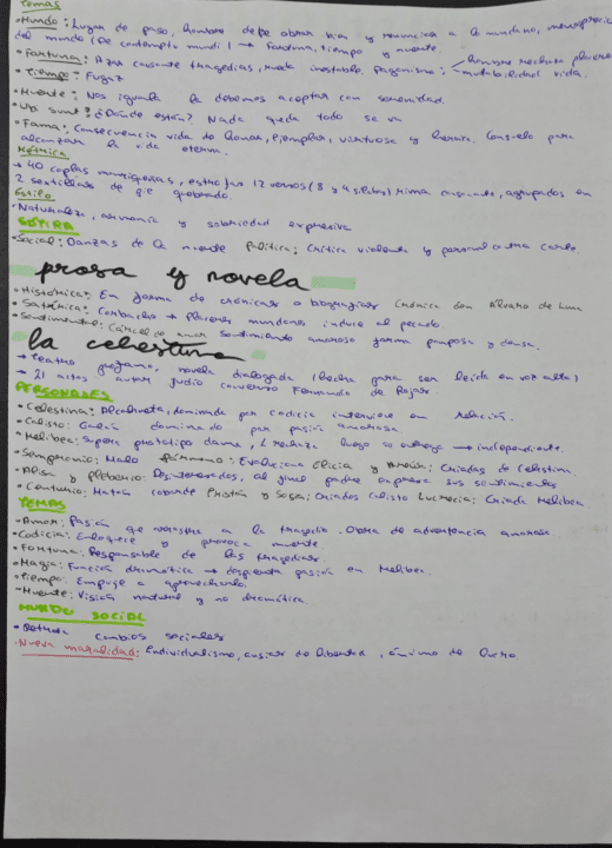 Temas
• Mundo: Lugar de paso, hombre debe obrar bien y renunciar a lo mundano, menosprecio
del mundo (De contemptu mundi) → Fortuna, tiempo y muerte.
• Fortuna: Azar causante tragedias, rueda inestable. Paganismo: hombre rechaza placeres
mutabilidad vida.
• Tiempo: Fugaz
• Muerte: Nos iguala la debemos aceptar con serenidad.
• Ubi sunt? ¿Dónde están? Nada queda todo se va
• Fama: Consecuencia vida de honor, ejemplar, virtuosa y heroica. Consuelo para
alcanzar la vida eterna.
Métrica
→ 40 coplas manriqueñas, estrofas 12 versos (8 y 4 sílabas) rima consonante, agrupados en
2 sextillas de pie quebrado.
Estilo
• Naturaleza, armonía y sobriedad expresiva
SÁTIRA
• Social: Danzas de la muerte Política: Crítica violenta y personal contra
prosa y novela
• Histórica: En forma de crónicas o biografías Crónica don Álvaro de Luna
• Satírica: Corbacho → placeres mundanos induce al pecado.
• Sentimental: Cárcel de amor Sentimiento amoroso forma pomposa y densa.
la celestina
→ Teatro profano, novela dialogada (hecha para ser leída en voz alta)
→ 21 actos autor judío converso Fernando de Rojas.
PERSONAJES
• Celestina: Alcahueta, dominada por codicia interviene en relación.
• Calisto: Galán dominado por pasión amorosa.
• Melibea: Supera prototipo dama, rechaza luego se entrega → independiente.
• Sempronio: Malo Pármeno: Evoluciona Elicia y Areúsa: Criadas de Celestina
• Alisa y Pleberio: Desinteresados, al final padre expresa sus sentimientos
• Centurio: Matón cobarde Tristán y Sosia: Criados Calisto Lucrecia: Criada Melibea.
TEMAS
• Amor: Pasión que arrastra a la tragedia. Obra de advertencia amorosa.
• Codicia: Enloquece y provoca muerte.
• Fortuna: Responsable de las tragedias.
• Magia: Función dramática → despierta pasión en Melibea.
• Tiempo: Empuje a aprovecharlo.
• Muerte: Visión natural y no dramática.
MUNDO SOCIAL
• Retrata cambios sociales
• Nueva moralidad: Individualismo, ansias de libertad, ánimo de lucro.